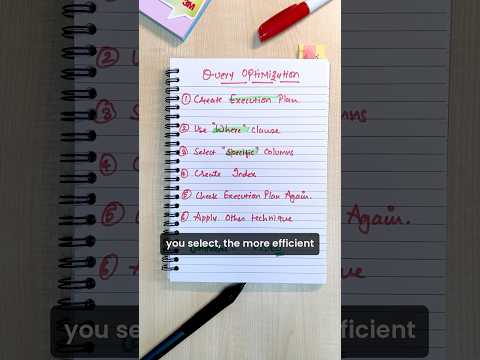 3M
Query Optimization
① Create Execution Plan
② Use "Where" Clause
③ Select "Specific" Columns
④ Create Index
⑤ Check Execution Plan Again.
⑥ Apply Other technique
you select, the more efficient
you select, the more efficient